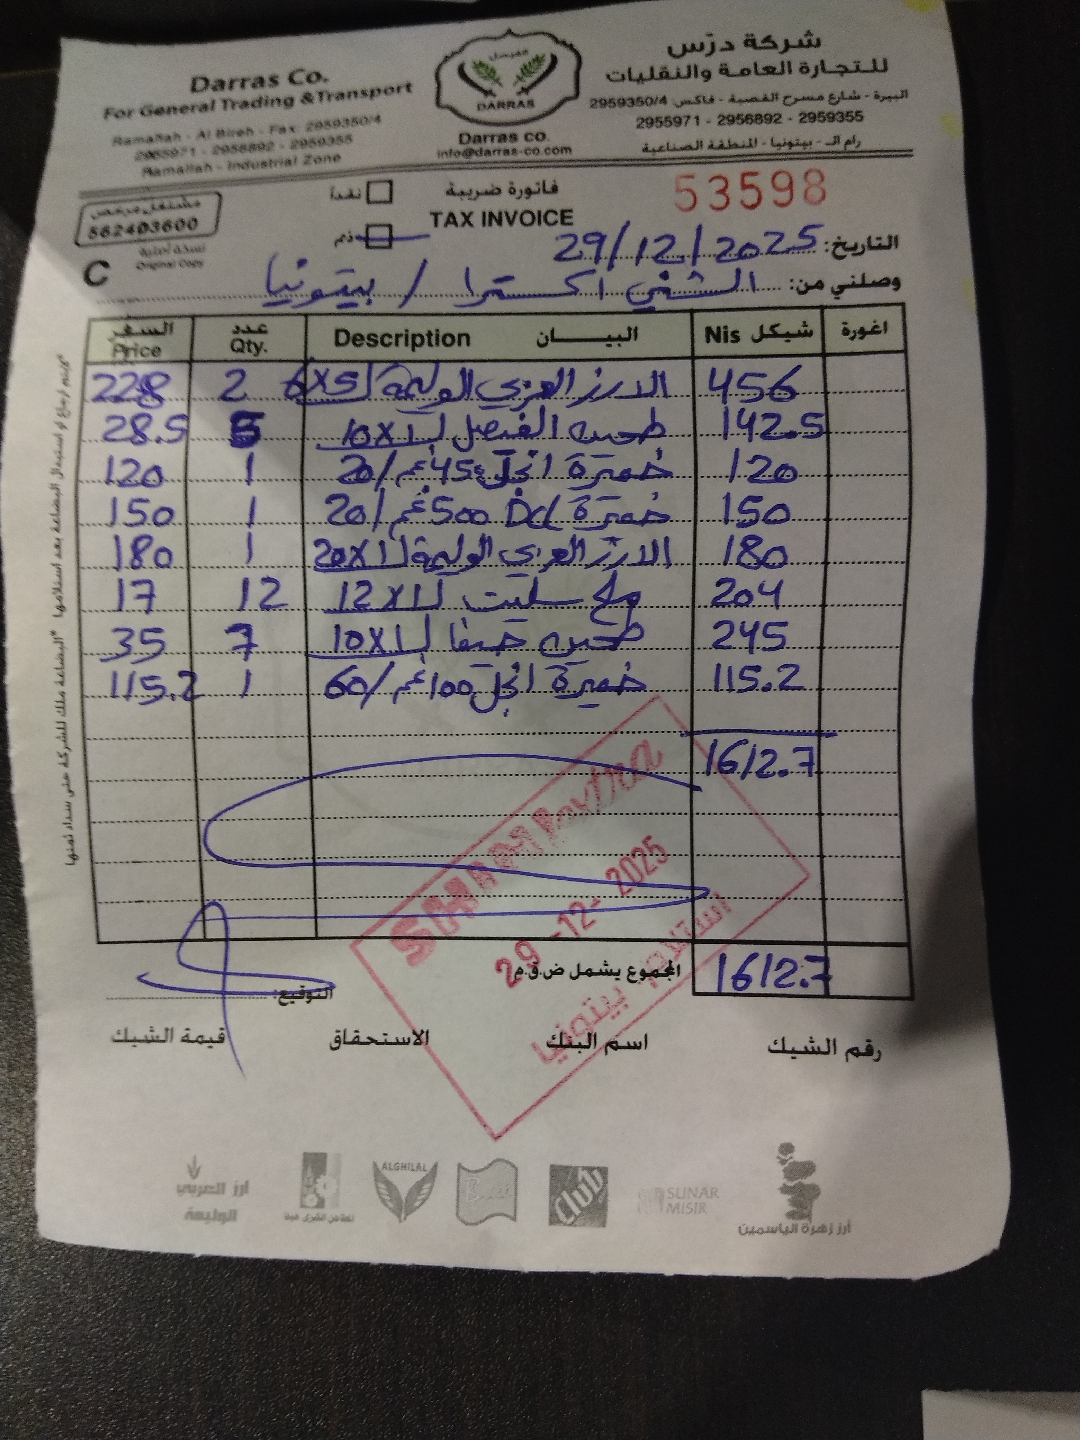 شركة درّس
للتجارة العامة والنقليات
البيرة - شارع مسرح القصبة - فاكس: 2959350/4
2955971 - 2956892 - 2959355
رام الله - بيتونيا - المنطقة الصناعية
DARRAS
Darras co.
info@darras-co.com
Darras Co.
For General Trading & Transport
Ramallah - Al Bireh - Fax: 2959350/4
2955971 - 2956892 - 2959355
Ramallah - Industrial Zone
مشتغل مرخص
562403600
نسخة أصلية
Original Copy
C
نقداً
ذمم
فاتورة ضريبة
TAX INVOICE
53598
التاريخ: 29/12/2025
وصلني من: الشني اكسترا / بيتونيا
اغورة شيكل Nis البيــــان Description عدد Qty. السعر Price
456 الارز العربي الوليمة 6X5 2 228
142.5 طحين الفيصل 10X1 5 28.5
120 خميرة انجل 450غم/20 1 120
150 خميرة 500غم/20 1 150
180 الارز العربي الوليمة 20X1 1 180
204 ملح سليت 12X1 12 17
245 طحين حيفا 10X1 7 35
115.2 خميرة انجل 100غم/60 1 115.2
1612.7
المجموع يشمل ض.ق.م 1612.7
التوقيع:
رقم الشيك اسم البنك الاستحقاق قيمة الشيك
extra
29-12-2025
استلام بيتونيا
أرز العربي
الوليمة
ALGHILAL
Club
SUNAR
MISIR
أرز زهرة الياسمين